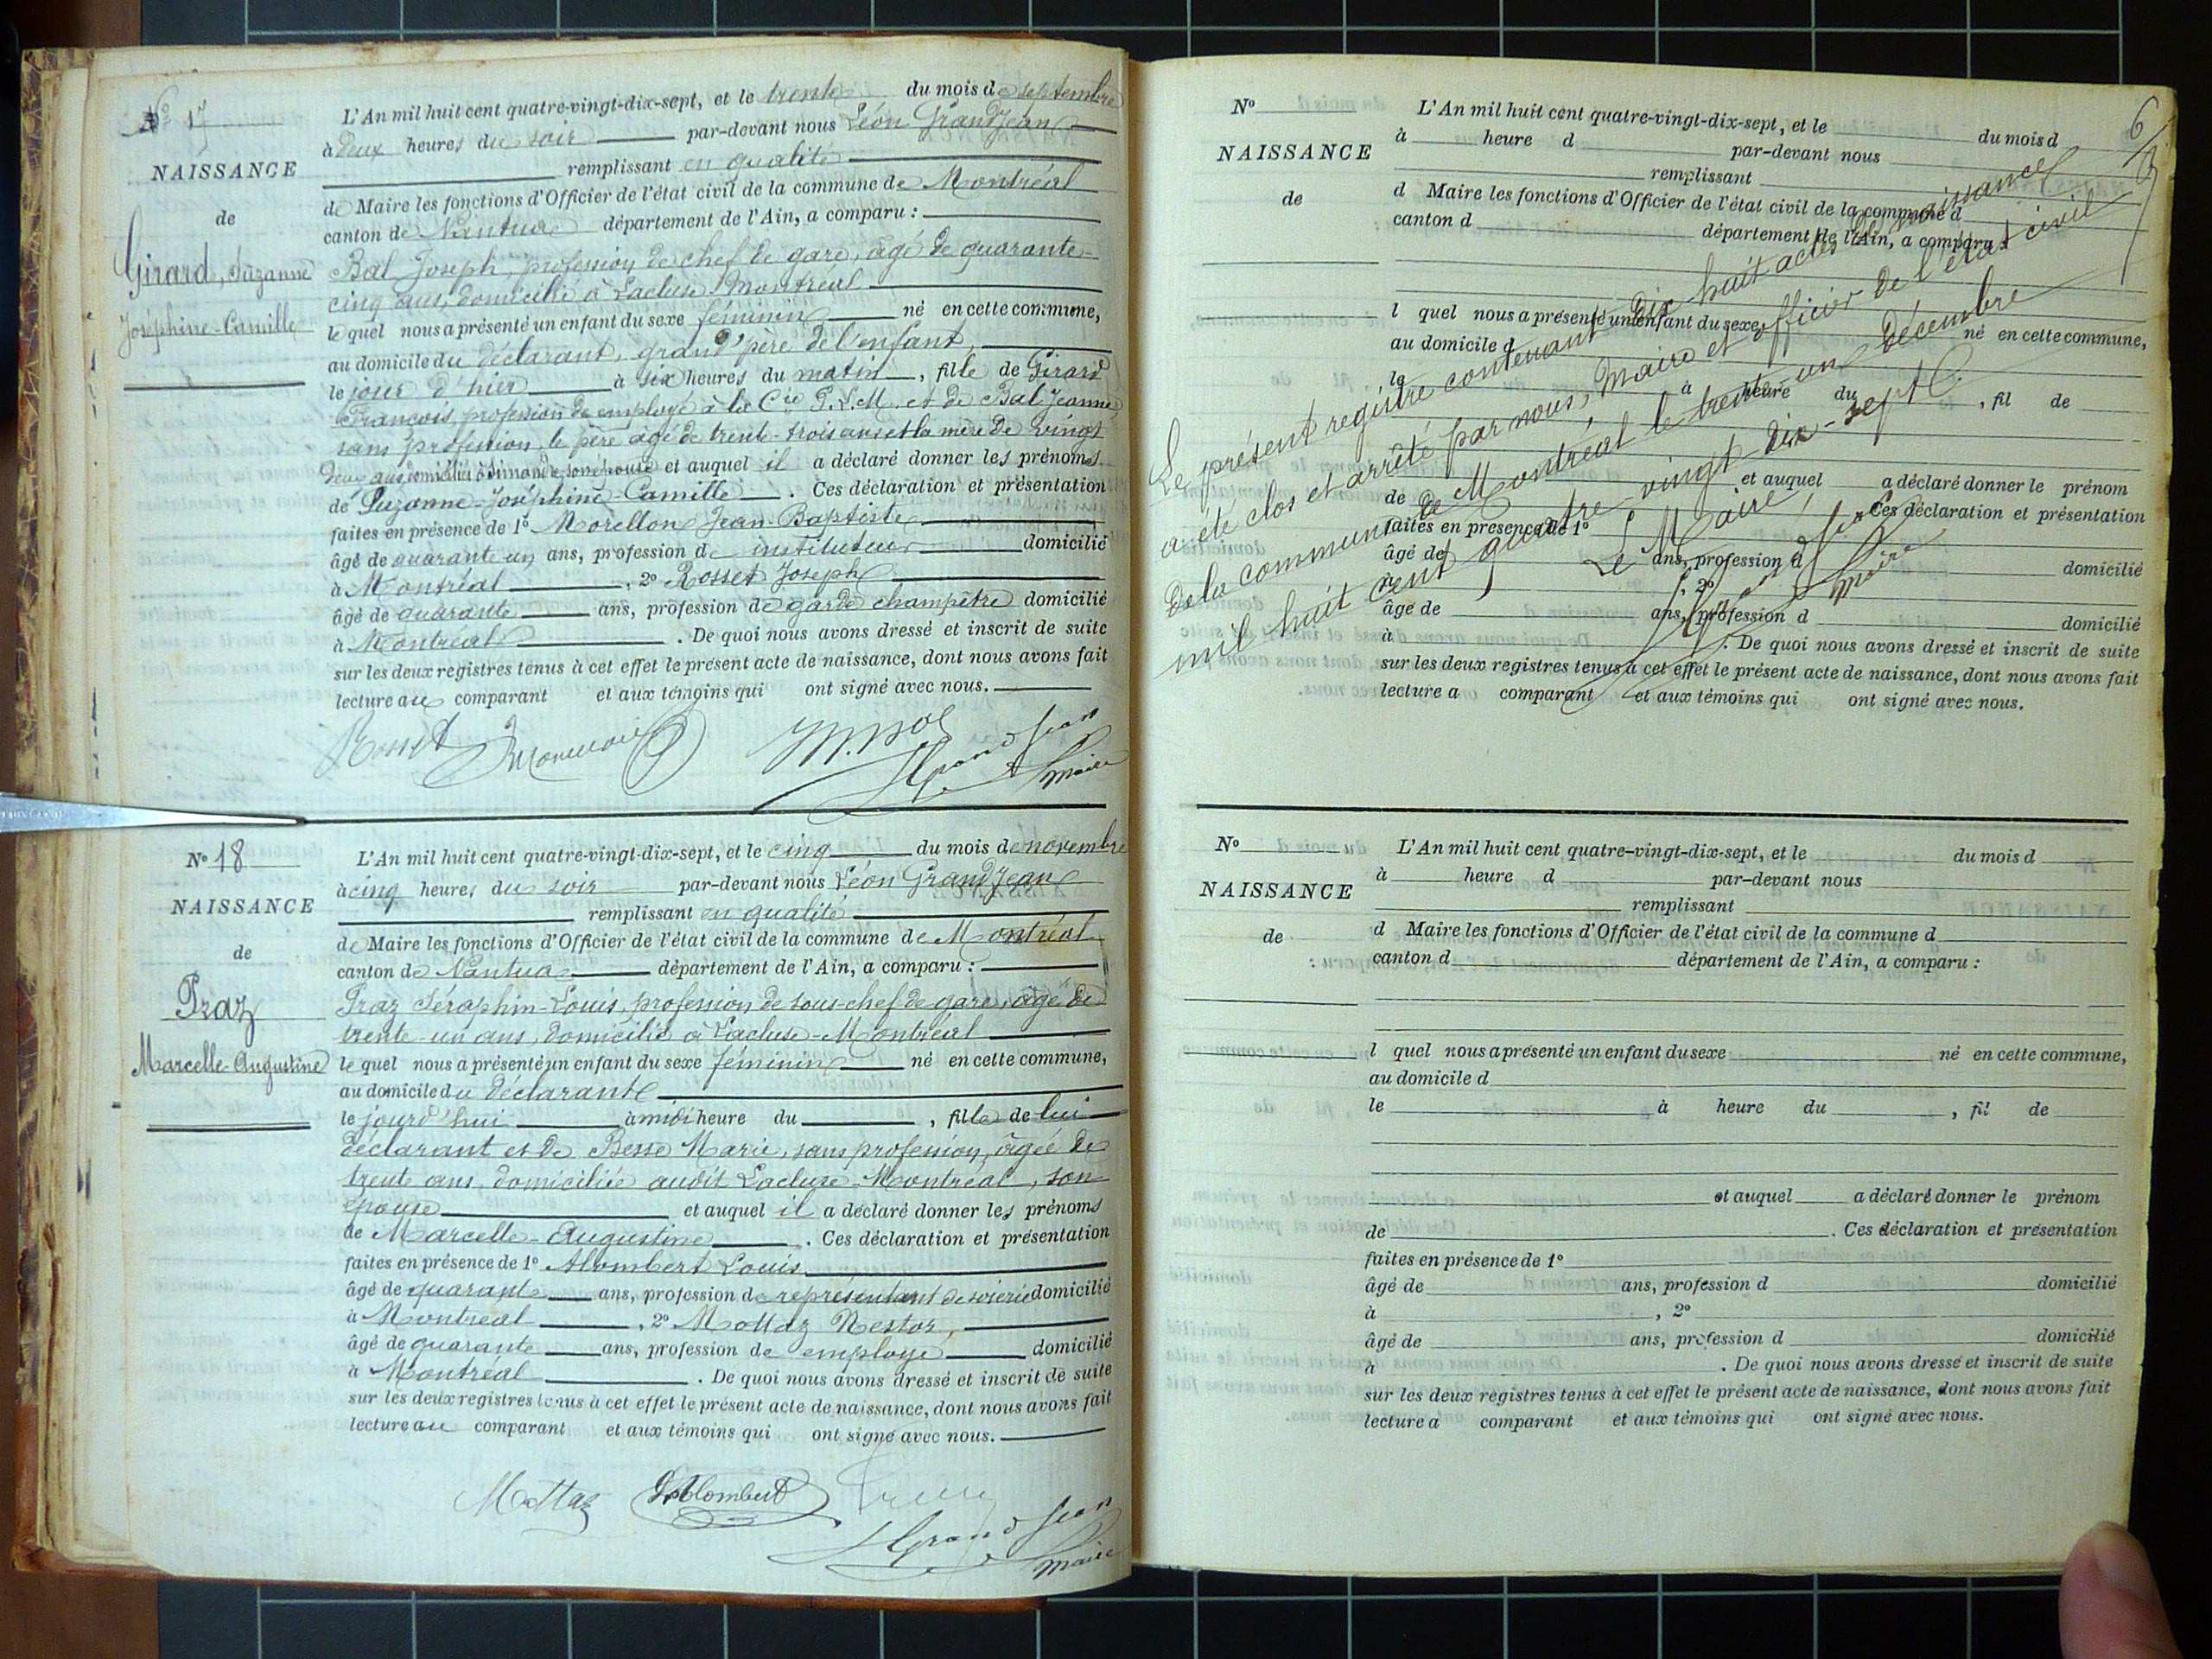 Nº 17
NAISSANCE
de
Girard, Suzanne
Joséphine-Camille
L'An mil huit cent quatre-vingt-dix-sept, et le trente du mois de septembre
à deux heures du soir par-devant nous Léon GrandJean
remplissant en qualité
de Maire les fonctions d'Officier de l'état civil de la commune de Montréal
canton de Nantua département de l'Ain, a comparu :
Bal Joseph, profession de chef de gare, âgé de quarante-
cinq ans, domicilié à Lacluse-Montréal
lequel nous a présenté un enfant du sexe féminin né en cette commune,
au domicile du déclarant, grand'père de l'enfant,
le jour d'hier à six heures du matin, fille de Girard
François, profession de employé à la Cie P.L.M. et de Bal Jeanne
sans profession, le père âgé de trente-trois ans et la mère de vingt
deux ans domiciliés à Simandre, son épouse et auquel il a déclaré donner les prénoms
de Suzanne-Joséphine-Camille. Ces déclaration et présentation
faites en présence de 1º Morellon Jean-Baptiste
âgé de quarante un ans, profession de instituteur domicilié
à Montréal, 2º Rosset Joseph
âgé de quarante ans, profession de garde champêtre domicilié
à Montréal. De quoi nous avons dressé et inscrit de suite
sur les deux registres tenus à cet effet le présent acte de naissance, dont nous avons fait
lecture au comparant et aux témoins qui ont signé avec nous.
Rosset
LGrandJean
Maire
Nº 18
NAISSANCE
de
Praz
Marcelle-Augustine
L'An mil huit cent quatre-vingt-dix-sept, et le cinq du mois de novembre
à cinq heures du soir par-devant nous Léon GrandJean
remplissant en qualité
de Maire les fonctions d'Officier de l'état civil de la commune de Montréal
canton de Nantua département de l'Ain, a comparu :
Praz Séraphin-Louis, profession de sous-chef de gare, âgé de
trente-un ans, domicilié à Lacluse-Montréal
lequel nous a présenté un enfant du sexe féminin né en cette commune,
au domicile du déclarant
le jourd'hui à midi heure du , fille de lui
déclarant et de Besse Marie, sans profession, âgée de
trente ans, domiciliée audit Lacluse-Montréal, son
épouse et auquel il a déclaré donner les prénoms
de Marcelle-Augustine. Ces déclaration et présentation
faites en présence de 1º Alombert Louis
âgé de quarante ans, profession de représentant de soierie domicilié
à Montréal, 2º Mottaz Nestor,
âgé de quarante ans, profession de employé domicilié
à Montréal. De quoi nous avons dressé et inscrit de suite
sur les deux registres tenus à cet effet le présent acte de naissance, dont nous avons fait
lecture au comparant et aux témoins qui ont signé avec nous.
Mottaz LAlombert
LGrandJean
Maire
6
Nº
NAISSANCE
de
L'An mil huit cent quatre-vingt-dix-sept, et le du mois d
à heure d par-devant nous
remplissant
d Maire les fonctions d'Officier de l'état civil de la commune d
canton d département de l'Ain, a comparu :
l quel nous a présenté un enfant du sexe né en cette commune,
au domicile d
le à heure du , fil de
et auquel a déclaré donner le prénom
de Ces déclaration et présentation
faites en présence de 1º
âgé de ans, profession d domicilié
à , 2º
âgé de ans, profession d domicilié
à . De quoi nous avons dressé et inscrit de suite
sur les deux registres tenus à cet effet le présent acte de naissance, dont nous avons fait
lecture a comparant et aux témoins qui ont signé avec nous.
Le présent registre contenant dix huit actes de naissance
a été clos et arrêté par nous, Maire et officier de l'état civil
de la commune de Montréal le trente un décembre
mil huit cent quatre vingt dix-sept.
Le Maire,
LGrandJean
Maire
Nº
NAISSANCE
de
L'An mil huit cent quatre-vingt-dix-sept, et le du mois d
à heure d par-devant nous
remplissant
d Maire les fonctions d'Officier de l'état civil de la commune d
canton d département de l'Ain, a comparu :
l quel nous a présenté un enfant du sexe né en cette commune,
au domicile d
le à heure du , fil de
et auquel a déclaré donner le prénom
de . Ces déclaration et présentation
faites en présence de 1º
âgé de ans, profession d domicilié
à , 2º
âgé de ans, profession d domicilié
à . De quoi nous avons dressé et inscrit de suite
sur les deux registres tenus à cet effet le présent acte de naissance, dont nous avons fait
lecture a comparant et aux témoins qui ont signé avec nous.